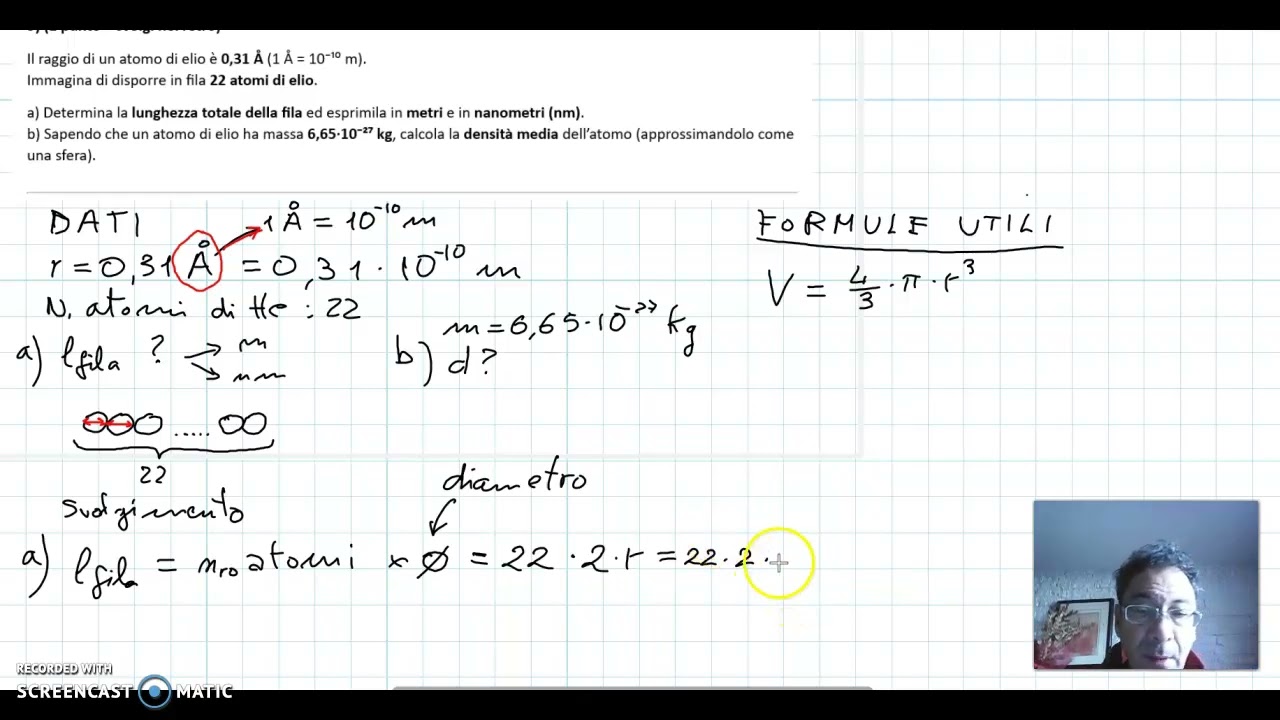 Il raggio di un atomo di elio è 0,31 Å (1 Å = 10⁻¹⁰ m).
Immagina di disporre in fila 22 atomi di elio.
a) Determina la lunghezza totale della fila ed esprimila in metri e in nanometri (nm).
b) Sapendo che un atomo di elio ha massa 6,65·10⁻²⁷ kg, calcola la densità media dell'atomo (approssimandolo come
una sfera).
DATI
1 Å = 10⁻¹⁰ m
r = 0,31 Å = 0,31 · 10⁻¹⁰ m
N. atomi di He : 22
m = 6,65·10⁻²⁷ kg
a) lfila ? m
nm
b) d?
FORMULE UTILI
V = 4/3 · π · r³
.....
22
diametro
svolgimento
a) lfila = nro atomi × ø = 22 · 2 · r = 22 · 2 ·
RECORDED WITH
SCREENCAST MATIC